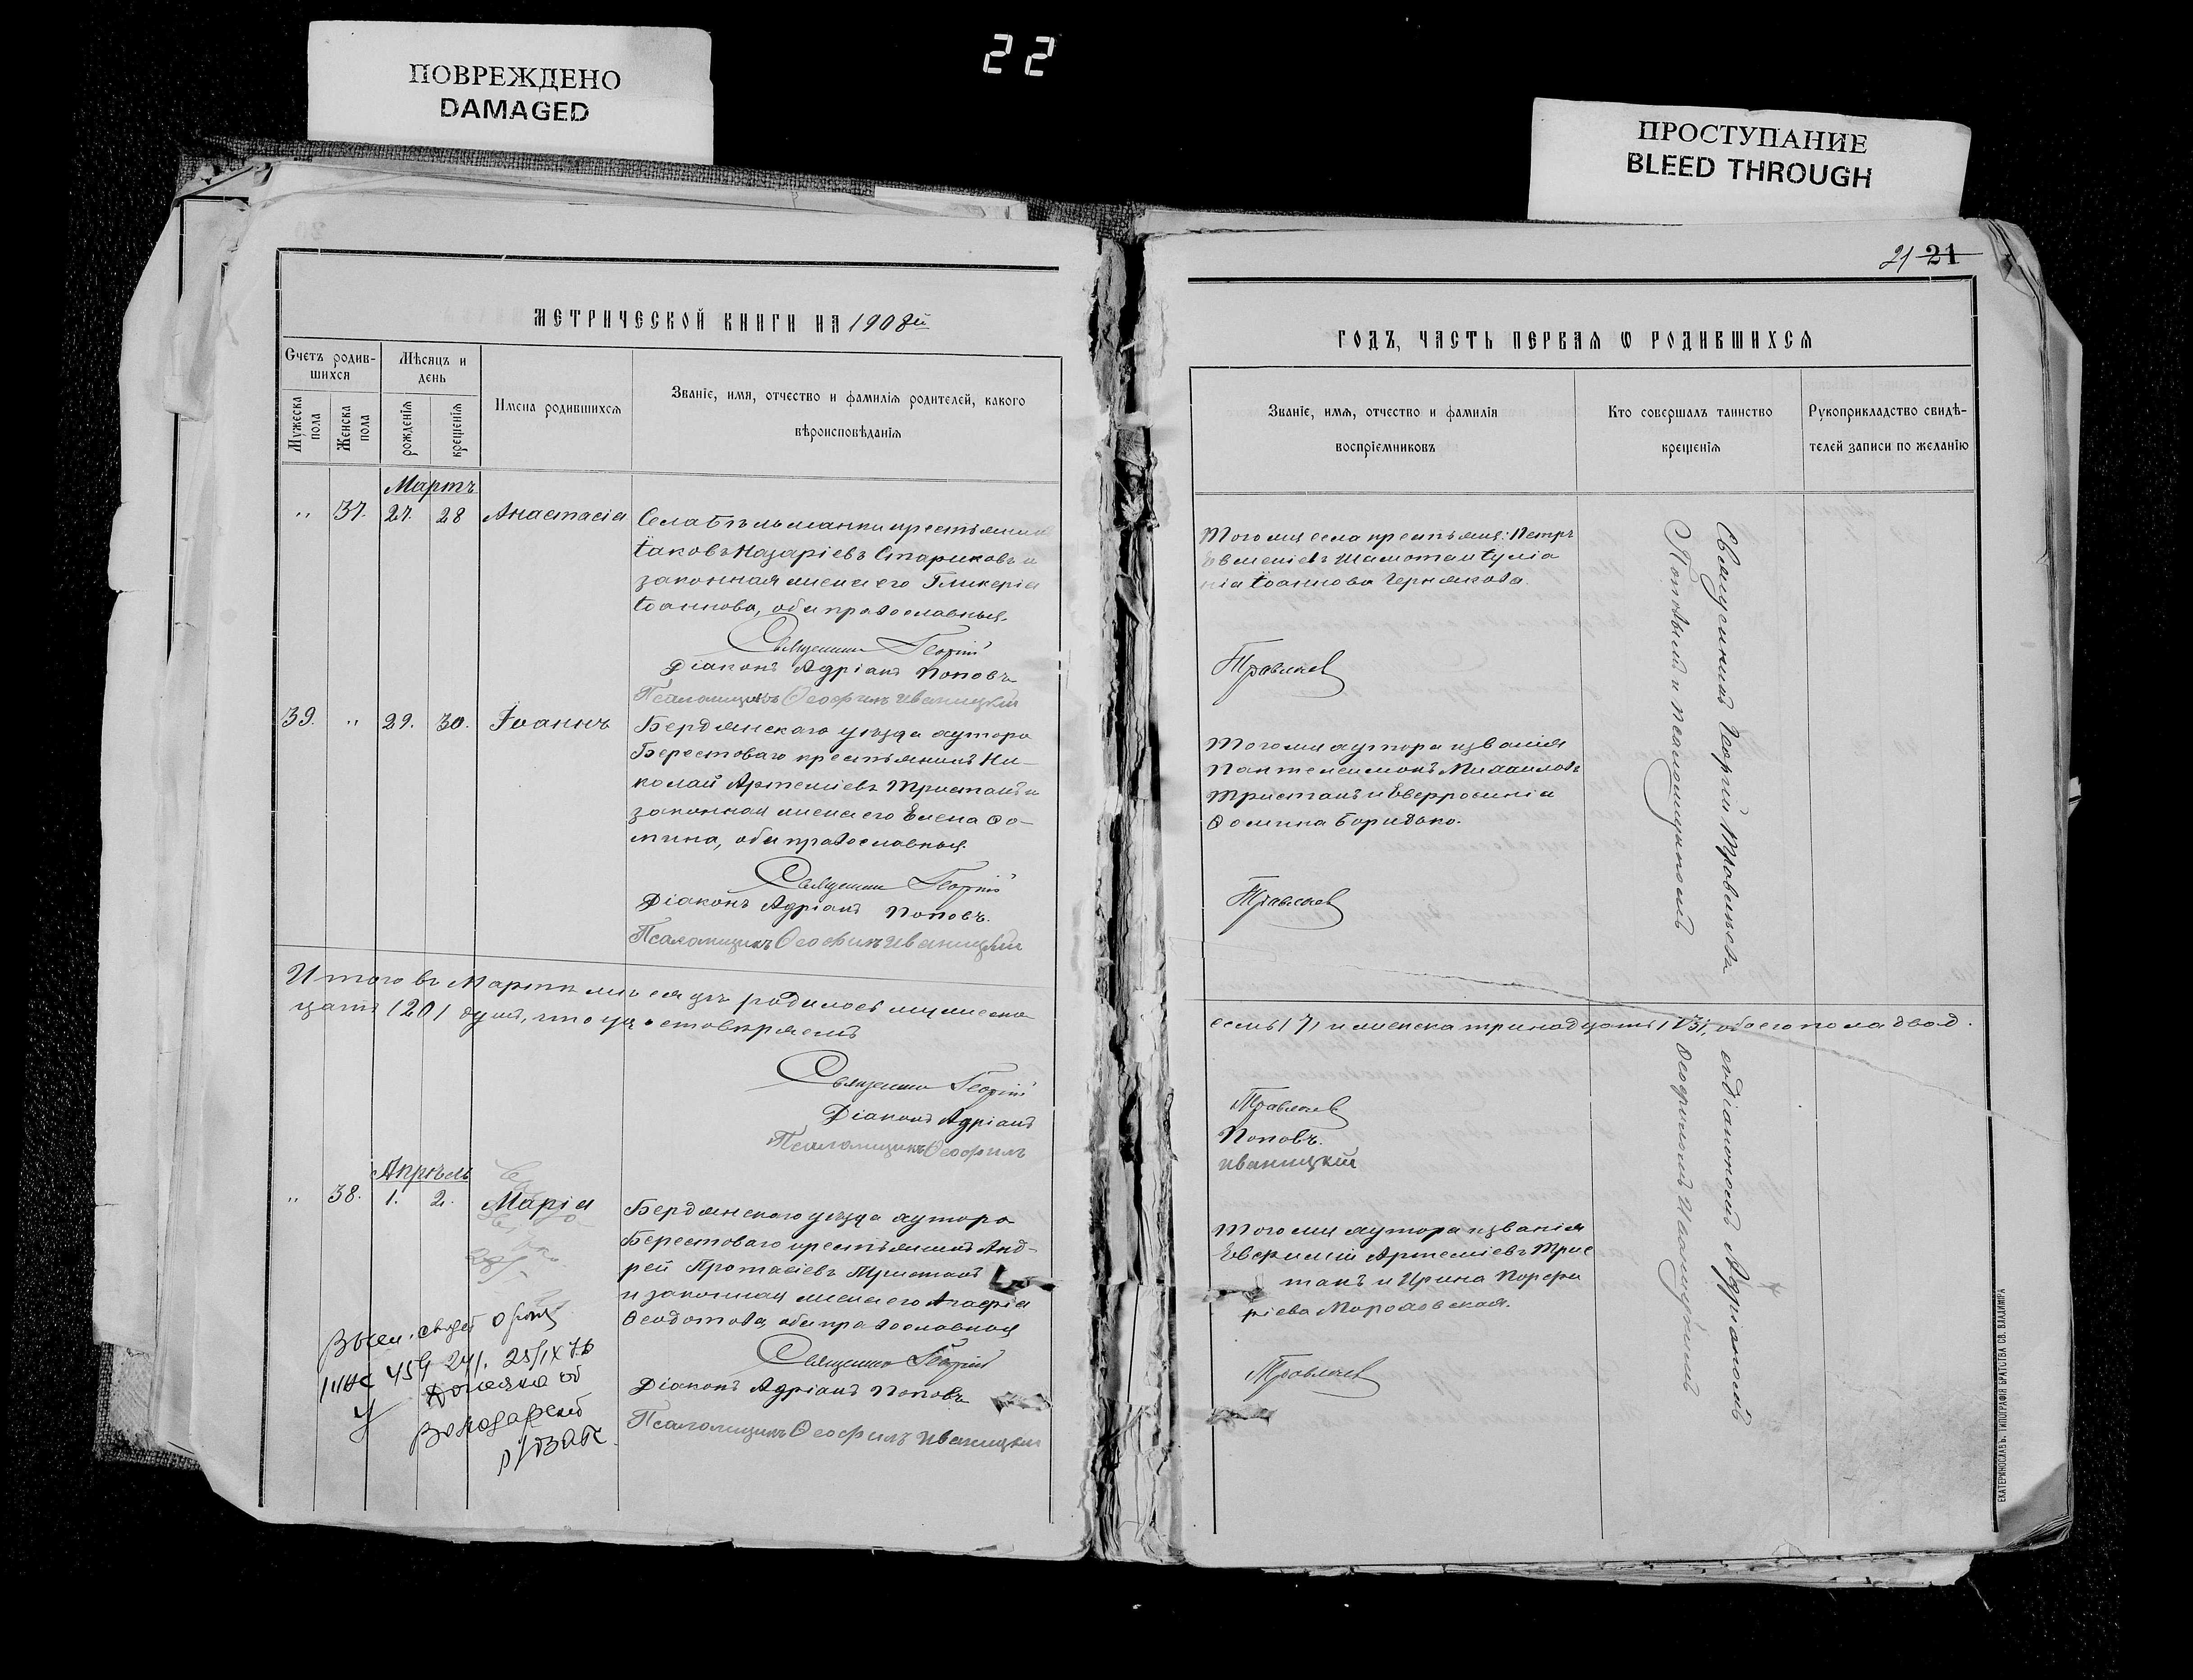 ПОВРЕЖДЕНО
DAMAGED
22
ПРОСТУПАНИЕ
BLEED THROUGH
21 21
МЕТРИЧЕСКОЙ КНИГИ НА 1908й
Счетъ родив-
шихся
Мѣсяцъ и
день
Мужеска
пола
Женска
пола
рожденія
крещенія
Имена родившихся
Званіе, имя, отчество и фамилія родителей, какого
вѣроисповѣданія
Мартъ
" 37. 27. 28 Анастасія
Села Бѣльманки крестьянинъ
Іаковъ Назаріевъ Стариковъ и
законная жена его Гликерія
Іоаннова, оба православные.
Священникъ Георгій
Діаконъ Адріанъ Поповъ
Псаломщикъ Ѳеофилъ Иваницкій
39. " 29. 30. Іоаннъ
Бердянскаго уѣзда хутора
Берестоваго крестьянинъ Ни-
колай Артеміевъ Тристанъ и
законная жена его Елена Ѳо-
мина, оба православные.
Священникъ Георгій
Діаконъ Адріанъ Поповъ.
Псаломщикъ Ѳеофилъ Иваницкій
Итого въ Мартѣ мѣсяцѣ родилось мужеска
цать /20/ душъ, что удостовѣряемъ
Священникъ Георгій
Діаконъ Адріанъ
Псаломщикъ Ѳеофилъ
Апрѣль
" 38. 1. 2. Марія
Бердянскаго уѣзда хутора
Берестоваго крестьянинъ Анд-
рей Протасіевъ Тристанъ
и законная жена его Агафія
Ѳеодотова, оба православные
Священникъ Георгій
Діаконъ Адріанъ Поповъ
Псаломщикъ Ѳеофилъ Иваницкій
свидет о рожд
459 25/IX
ГОДЪ, ЧАСТЬ ПЕРВАЯ Ѡ РОДИВШИХСЯ
Званіе, имя, отчество и фамилія
воспріемниковъ
Кто совершалъ таинство
крещенія
Рукоприкладство свидѣ-
телей записи по желанію
Того же села крестьяне: Петръ
Евменіевъ Шамота и Іуліа
нія Іоаннова Чернякова.
Травлеевъ
Того же хутора и званія
Пантелеимонъ Михаиловъ
Тристанъ и Евфросинія
Ѳомина Боридько.
Травлеевъ
семь /7/ и женска тринадцать /13/, обоего пола двад.
Травлеевъ
Поповъ.
Иваницкій
Того же хутора и званія
Евфимій Артеміевъ Трис
танъ и Ирина Порфи
ріева Мороховская.
Травлеевъ
Священникъ Георгій
Поповымъ и псаломщикомъ
съ Діакономъ Адріаномъ
Ѳеофиломъ Иваницкимъ
ЕКАТЕРИНОСЛАВЪ. ТИПОГРАФІЯ БРАТСТВА СВ. ВЛАДИМІРА